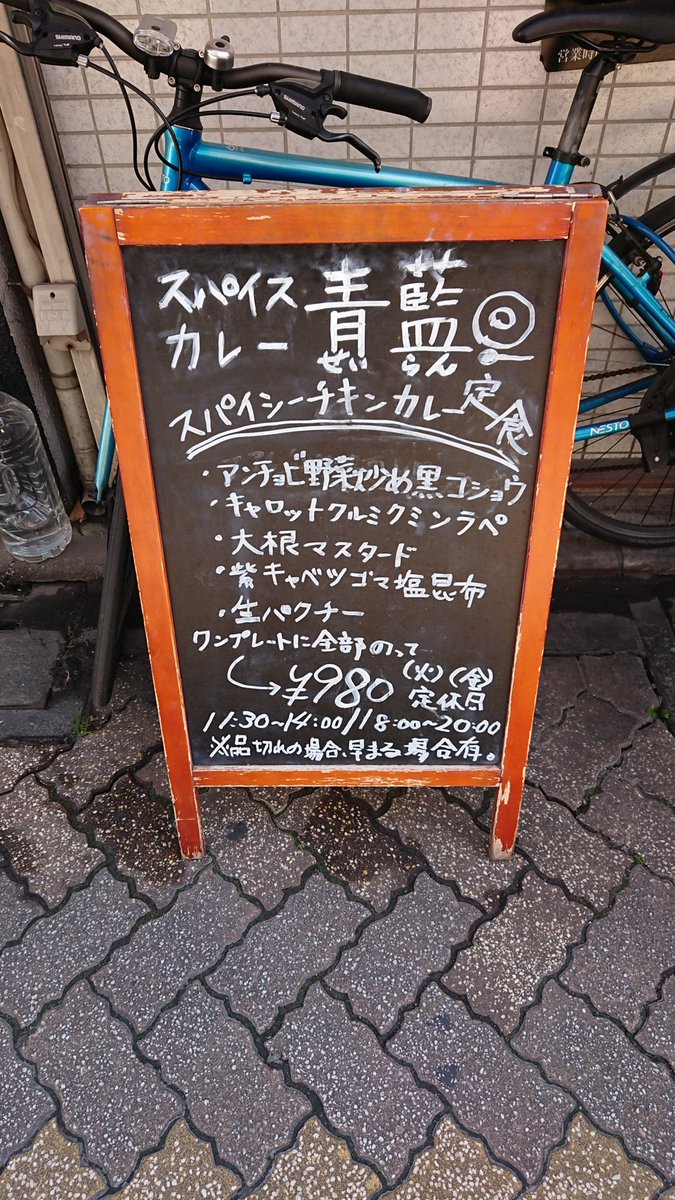 SHIMANO
SHIMANO
営業時
スパイス
カレー
青藍
せい らん
スパイシーチキンカレー定食
・アンチョビ野菜炒め黒コショウ
・キャロットクルミクミンラペ
・大根マスタード
・紫キャベツゴマ塩昆布
・生パクチー
ワンプレートに全部のって
→¥980
(火)(金)
定休日
11:30~14:00/18:00~20:00
※品切れの場合、早まる場合有。
NESTO